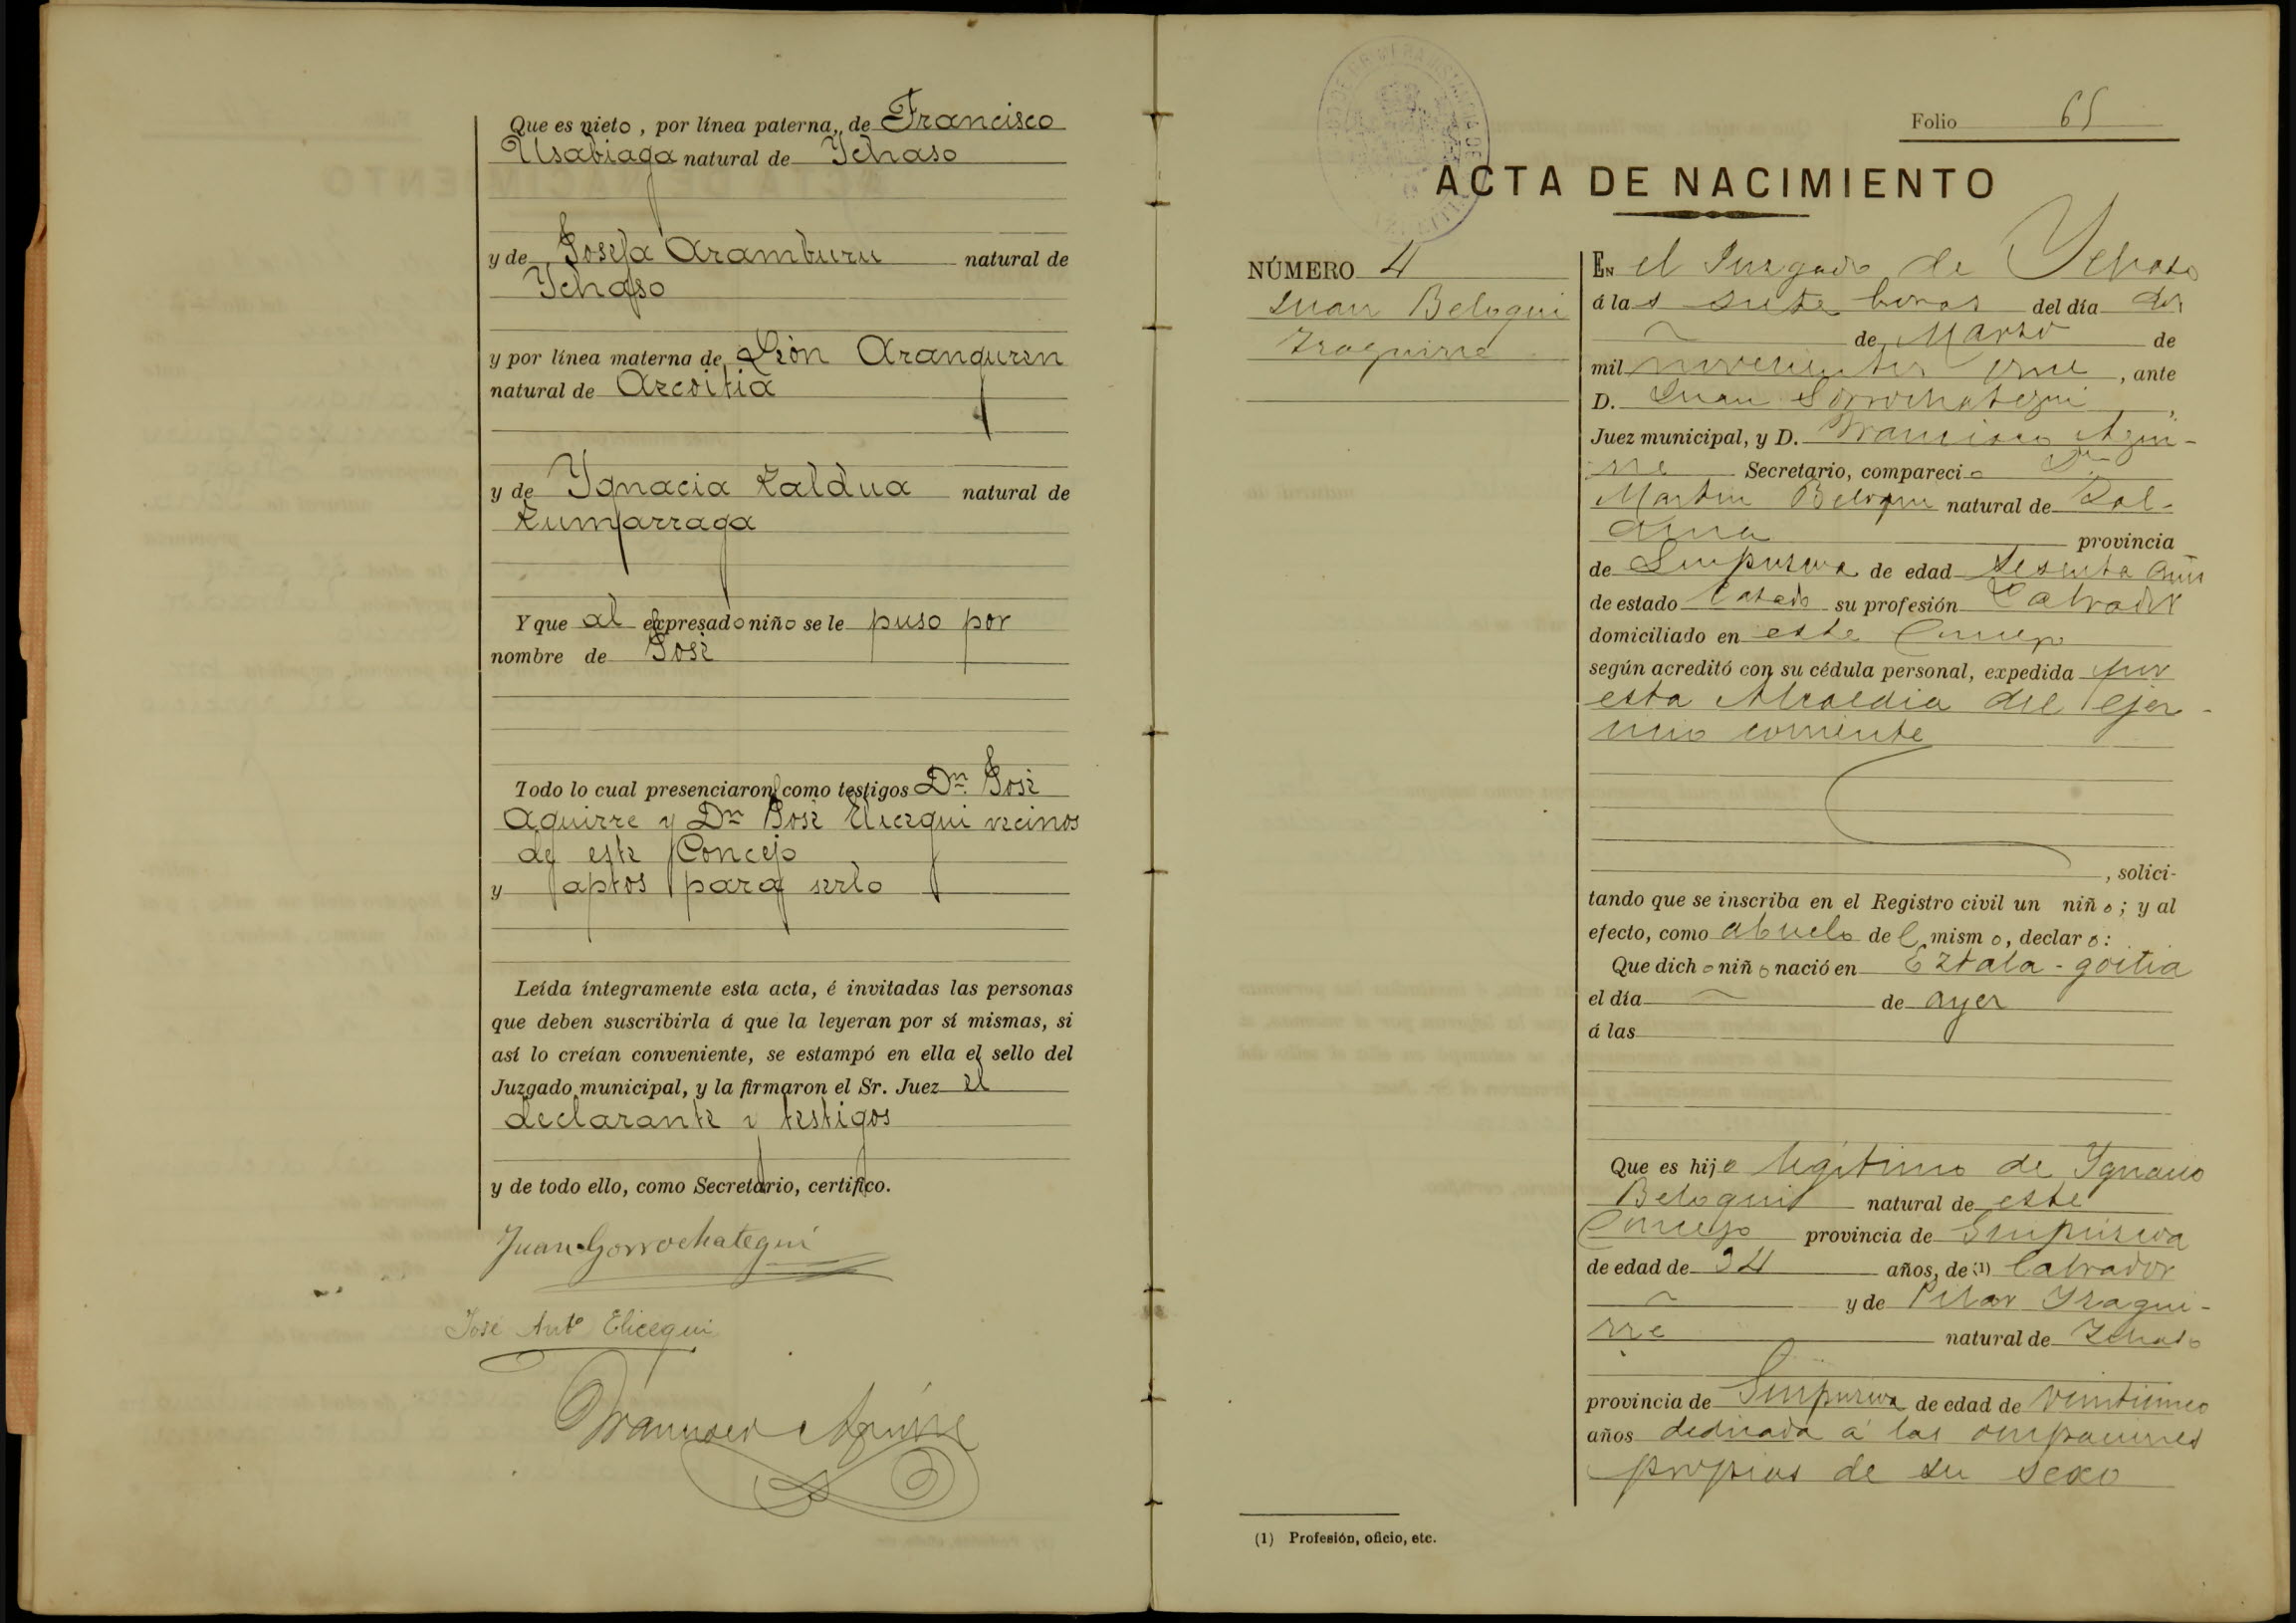 Que es nieto, por línea paterna, de Francisco
Usabiaga natural de Ychaso
y de Josefa Aramburu natural de
Ychaso
y por línea materna de León Aranguren
natural de Azcoitia
y de Ygnacia Zaldua natural de
Zumarraga
Y que al expresado niño se le puso por
nombre de José
Todo lo cual presenciaron como testigos Dn. José
Aguirre y Dn José Elicegui vecinos
de este Concejo
y aptos para serlo
Leída íntegramente esta acta, é invitadas las personas
que deben suscribirla á que la leyeran por sí mismas, si
así lo creían conveniente, se estampó en ella el sello del
Juzgado municipal, y la firmaron el Sr. Juez el
declarante y testigos
y de todo ello, como Secretario, certifico.
Juan Gorrochategui
José Anto Elicegui
Francisco Aguirre
Folio 65
ACTA DE NACIMIENTO
NÚMERO 4
Juan Beloqui
Yraguirre
EN el Juzgado de Ychaso
á las siete horas del día dos
de Marzo de
mil novecientos once, ante
D. Juan Gorrochategui,
Juez municipal, y D. Francisco Agui-
rre Secretario, compareció Dn.
Martin Beloqui natural de Zal-
divia provincia
de Guipuzcoa de edad sesenta años
de estado Casado su profesión Labrador
domiciliado en este Concejo
según acreditó con su cédula personal, expedida por
esta Alcaldia del ejer-
cicio corriente
, solici-
tando que se inscriba en el Registro civil un niño; y al
efecto, como abuelo del mismo, declaró:
Que dicho niño nació en Eztala-goitia
el día de ayer
á las
Que es hijo legitimo de Ygnacio
Beloqui natural de este
Concejo provincia de Guipúzcoa
de edad de 34 años, de (1) Labrador
y de Pilar Yragui-
rre natural de Ychaso
provincia de Guipuzcoa de edad de veinticinco
años dedicada á las ocupaciones
propias de su sexo
(1) Profesión, oficio, etc.